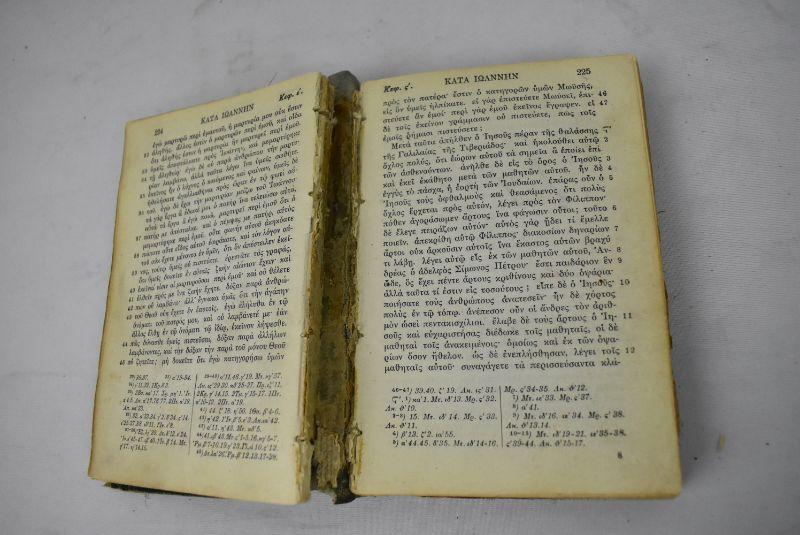 224 ΚΑΤΑ ΙΩΑΝΝΗΝ Κεφ. έ.
ἐγὼ μαρτυρῶ περὶ ἐμαυτοῦ, ἡ μαρτυρία μου οὐκ ἔστιν
32 ἀληθής. ἄλλος ἐστὶν ὁ μαρτυρῶν περὶ ἐμοῦ, καὶ οἶδα
ὅτι ἀληθής ἐστιν ἡ μαρτυρία ἣν μαρτυρεῖ περὶ ἐμοῦ.
33 ὑμεῖς ἀπεστάλκατε πρὸς Ἰωάννην, καὶ μεμαρτύρηκε
34 τῇ ἀληθείᾳ· ἐγὼ δὲ οὐ παρὰ ἀνθρώπου τὴν μαρτυ-
ρίαν λαμβάνω, ἀλλὰ ταῦτα λέγω ἵνα ὑμεῖς σωθῆτε.
35 ἐκεῖνος ἦν ὁ λύχνος ὁ καιόμενος καὶ φαίνων, ὑμεῖς δὲ
ἠθελήσατε ἀγαλλιαθῆναι πρὸς ὥραν ἐν τῷ φωτὶ αὐ-
36 τοῦ. ἐγὼ δὲ ἔχω τὴν μαρτυρίαν μείζω τοῦ Ἰωάννου·
τὰ γὰρ ἔργα ἃ ἔδωκέ μοι ὁ πατὴρ ἵνα τελειώσω αὐτά,
αὐτὰ τὰ ἔργα ἃ ἐγὼ ποιῶ, μαρτυρεῖ περὶ ἐμοῦ ὅτι ὁ
37 πατήρ με ἀπέσταλκε. καὶ ὁ πέμψας με πατήρ, αὐτὸς
μεμαρτύρηκε περὶ ἐμοῦ. οὔτε φωνὴν αὐτοῦ ἀκηκόατε
38 πώποτε οὔτε εἶδος αὐτοῦ ἑωράκατε, καὶ τὸν λόγον αὐ-
τοῦ οὐκ ἔχετε μένοντα ἐν ὑμῖν, ὅτι ὃν ἀπέστειλεν ἐκεῖ-
39 νος, τούτῳ ὑμεῖς οὐ πιστεύετε. ἐρευνᾶτε τὰς γραφάς,
ὅτι ὑμεῖς δοκεῖτε ἐν αὐταῖς ζωὴν αἰώνιον ἔχειν· καὶ
40 ἐκεῖναί εἰσιν αἱ μαρτυροῦσαι περὶ ἐμοῦ· καὶ οὐ θέλετε
41 ἐλθεῖν πρός με ἵνα ζωὴν ἔχητε. δόξαν παρὰ ἀνθρώ-
42 πων οὐ λαμβάνω· ἀλλ' ἔγνωκα ὑμᾶς ὅτι τὴν ἀγάπην
43 τοῦ Θεοῦ οὐκ ἔχετε ἐν ἑαυτοῖς. ἐγὼ ἐλήλυθα ἐν τῷ
ὀνόματι τοῦ πατρός μου, καὶ οὐ λαμβάνετέ με· ἐὰν
ἄλλος ἔλθῃ ἐν τῷ ὀνόματι τῷ ἰδίῳ, ἐκεῖνον λήψεσθε.
44 πῶς δύνασθε ὑμεῖς πιστεῦσαι, δόξαν παρὰ ἀλλήλων
λαμβάνοντες, καὶ τὴν δόξαν τὴν παρὰ τοῦ μόνου Θεοῦ
45 οὐ ζητεῖτε; μὴ δοκεῖτε ὅτι ἐγὼ κατηγορήσω ὑμῶν
Κεφ. ς΄. ΚΑΤΑ ΙΩΑΝΝΗΝ 225
πρὸς τὸν πατέρα· ἔστιν ὁ κατηγορῶν ὑμῶν Μωϋσῆς,
εἰς ὃν ὑμεῖς ἠλπίκατε. εἰ γὰρ ἐπιστεύετε Μωϋσεῖ, ἐπι- 46
στεύετε ἂν ἐμοί· περὶ γὰρ ἐμοῦ ἐκεῖνος ἔγραψεν. εἰ 47
δὲ τοῖς ἐκείνου γράμμασιν οὐ πιστεύετε, πῶς τοῖς
ἐμοῖς ῥήμασι πιστεύσετε;
Μετὰ ταῦτα ἀπῆλθεν ὁ Ἰησοῦς πέραν τῆς θαλάσσης ς΄
τῆς Γαλιλαίας τῆς Τιβεριάδος· καὶ ἠκολούθει αὐτῷ 2
ὄχλος πολύς, ὅτι ἑώρων αὐτοῦ τὰ σημεῖα ἃ ἐποίει ἐπὶ
τῶν ἀσθενούντων. ἀνῆλθε δὲ εἰς τὸ ὄρος ὁ Ἰησοῦς 3
καὶ ἐκεῖ ἐκάθητο μετὰ τῶν μαθητῶν αὐτοῦ. ἦν δὲ 4
ἐγγὺς τὸ πάσχα, ἡ ἑορτὴ τῶν Ἰουδαίων. ἐπάρας οὖν ὁ 5
Ἰησοῦς τοὺς ὀφθαλμοὺς καὶ θεασάμενος ὅτι πολὺς
ὄχλος ἔρχεται πρὸς αὐτόν, λέγει πρὸς τὸν Φίλιππον·
πόθεν ἀγοράσωμεν ἄρτους ἵνα φάγωσιν οὗτοι; τοῦτο 6
δὲ ἔλεγε πειράζων αὐτόν· αὐτὸς γὰρ ᾔδει τί ἔμελλε
ποιεῖν. ἀπεκρίθη αὐτῷ Φίλιππος· διακοσίων δηναρίων 7
ἄρτοι οὐκ ἀρκοῦσιν αὐτοῖς ἵνα ἕκαστος αὐτῶν βραχύ
τι λάβῃ. λέγει αὐτῷ εἷς ἐκ τῶν μαθητῶν αὐτοῦ, Ἀν- 8
δρέας ὁ ἀδελφὸς Σίμωνος Πέτρου· ἔστι παιδάριον ἓν 9
ὧδε, ὃς ἔχει πέντε ἄρτους κριθίνους καὶ δύο ὀψάρια·
ἀλλὰ ταῦτα τί ἐστιν εἰς τοσούτους; εἶπε δὲ ὁ Ἰησοῦς· 10
ποιήσατε τοὺς ἀνθρώπους ἀναπεσεῖν· ἦν δὲ χόρτος
πολὺς ἐν τῷ τόπῳ. ἀνέπεσον οὖν οἱ ἄνδρες τὸν ἀριθ-
μὸν ὡσεὶ πεντακισχίλιοι. ἔλαβε δὲ τοὺς ἄρτους ὁ Ἰη- 11
σοῦς καὶ εὐχαριστήσας διέδωκε τοῖς μαθηταῖς, οἱ δὲ
μαθηταὶ τοῖς ἀνακειμένοις· ὁμοίως καὶ ἐκ τῶν ὀψα-
ρίων ὅσον ἤθελον. ὡς δὲ ἐνεπλήσθησαν, λέγει τοῖς 12
μαθηταῖς αὐτοῦ· συναγάγετε τὰ περισσεύσαντα κλά-
46-47) 39.40. ζ΄ 19. Λκ. ις΄ 31.
ς΄. 1) κα΄ 1. Μτ. ιδ΄ 13. Μρ. ς΄ 32.
Λκ. θ΄ 10.
2-3) 15. Μτ. ιδ΄ 14. Μρ. ς΄ 33.
Λκ. θ΄ 11.
4) β΄ 13. ζ΄ 2. ια΄ 55.
5) α΄ 44.45. δ΄ 35. Μτ. ιδ΄ 14-16.
Μρ. ς΄ 34-35. Λκ. θ΄ 12.
7) Μτ. ιδ΄ 37. Μρ. ς΄ 37.
8) α΄ 41.
9) Μτ. ιδ΄ 16. ιε΄ 34. Μρ. ς΄ 38.
Λκ. θ΄ 13.14.
10-13) Μτ. ιδ΄ 19-21. ιε΄ 35-38.
ς΄ 39-44. Λκ. θ΄ 15-17.
8